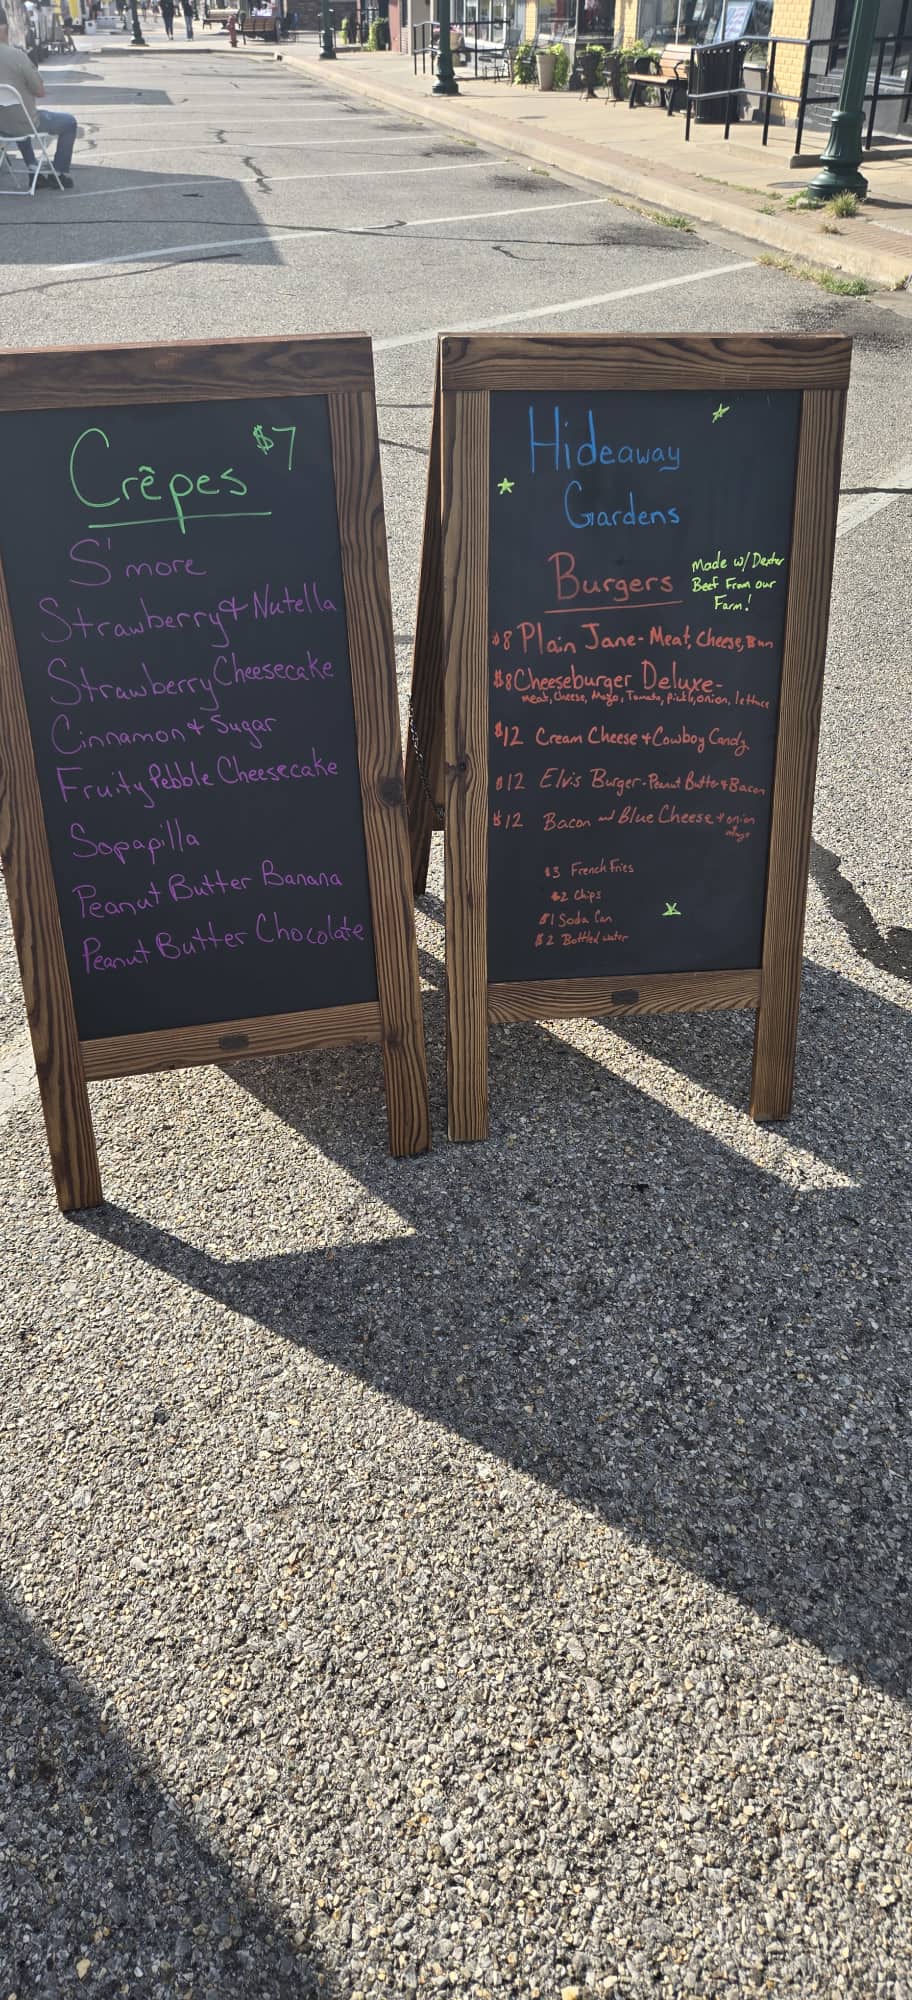 Crêpes $7
S'more
Strawberry & Nutella
Strawberry Cheesecake
Cinnamon & Sugar
Fruity Pebble Cheesecake
Sopapilla
Peanut Butter Banana
Peanut Butter Chocolate
Hideaway
Gardens
Burgers
Made w/ Dexter
Beef From our
Farm!
$8 Plain Jane - Meat, Cheese, Bun
$8 Cheeseburger Deluxe -
meat, Cheese, Mayo, Tomato, Pickle, onion, lettuce
$12 Cream Cheese & Cowboy Candy
$12 Elvis Burger - Peanut Butter & Bacon
$12 Bacon and Blue Cheese & onion
$3 French Fries
$2 Chips
$1 Soda Can
$2 Bottled water